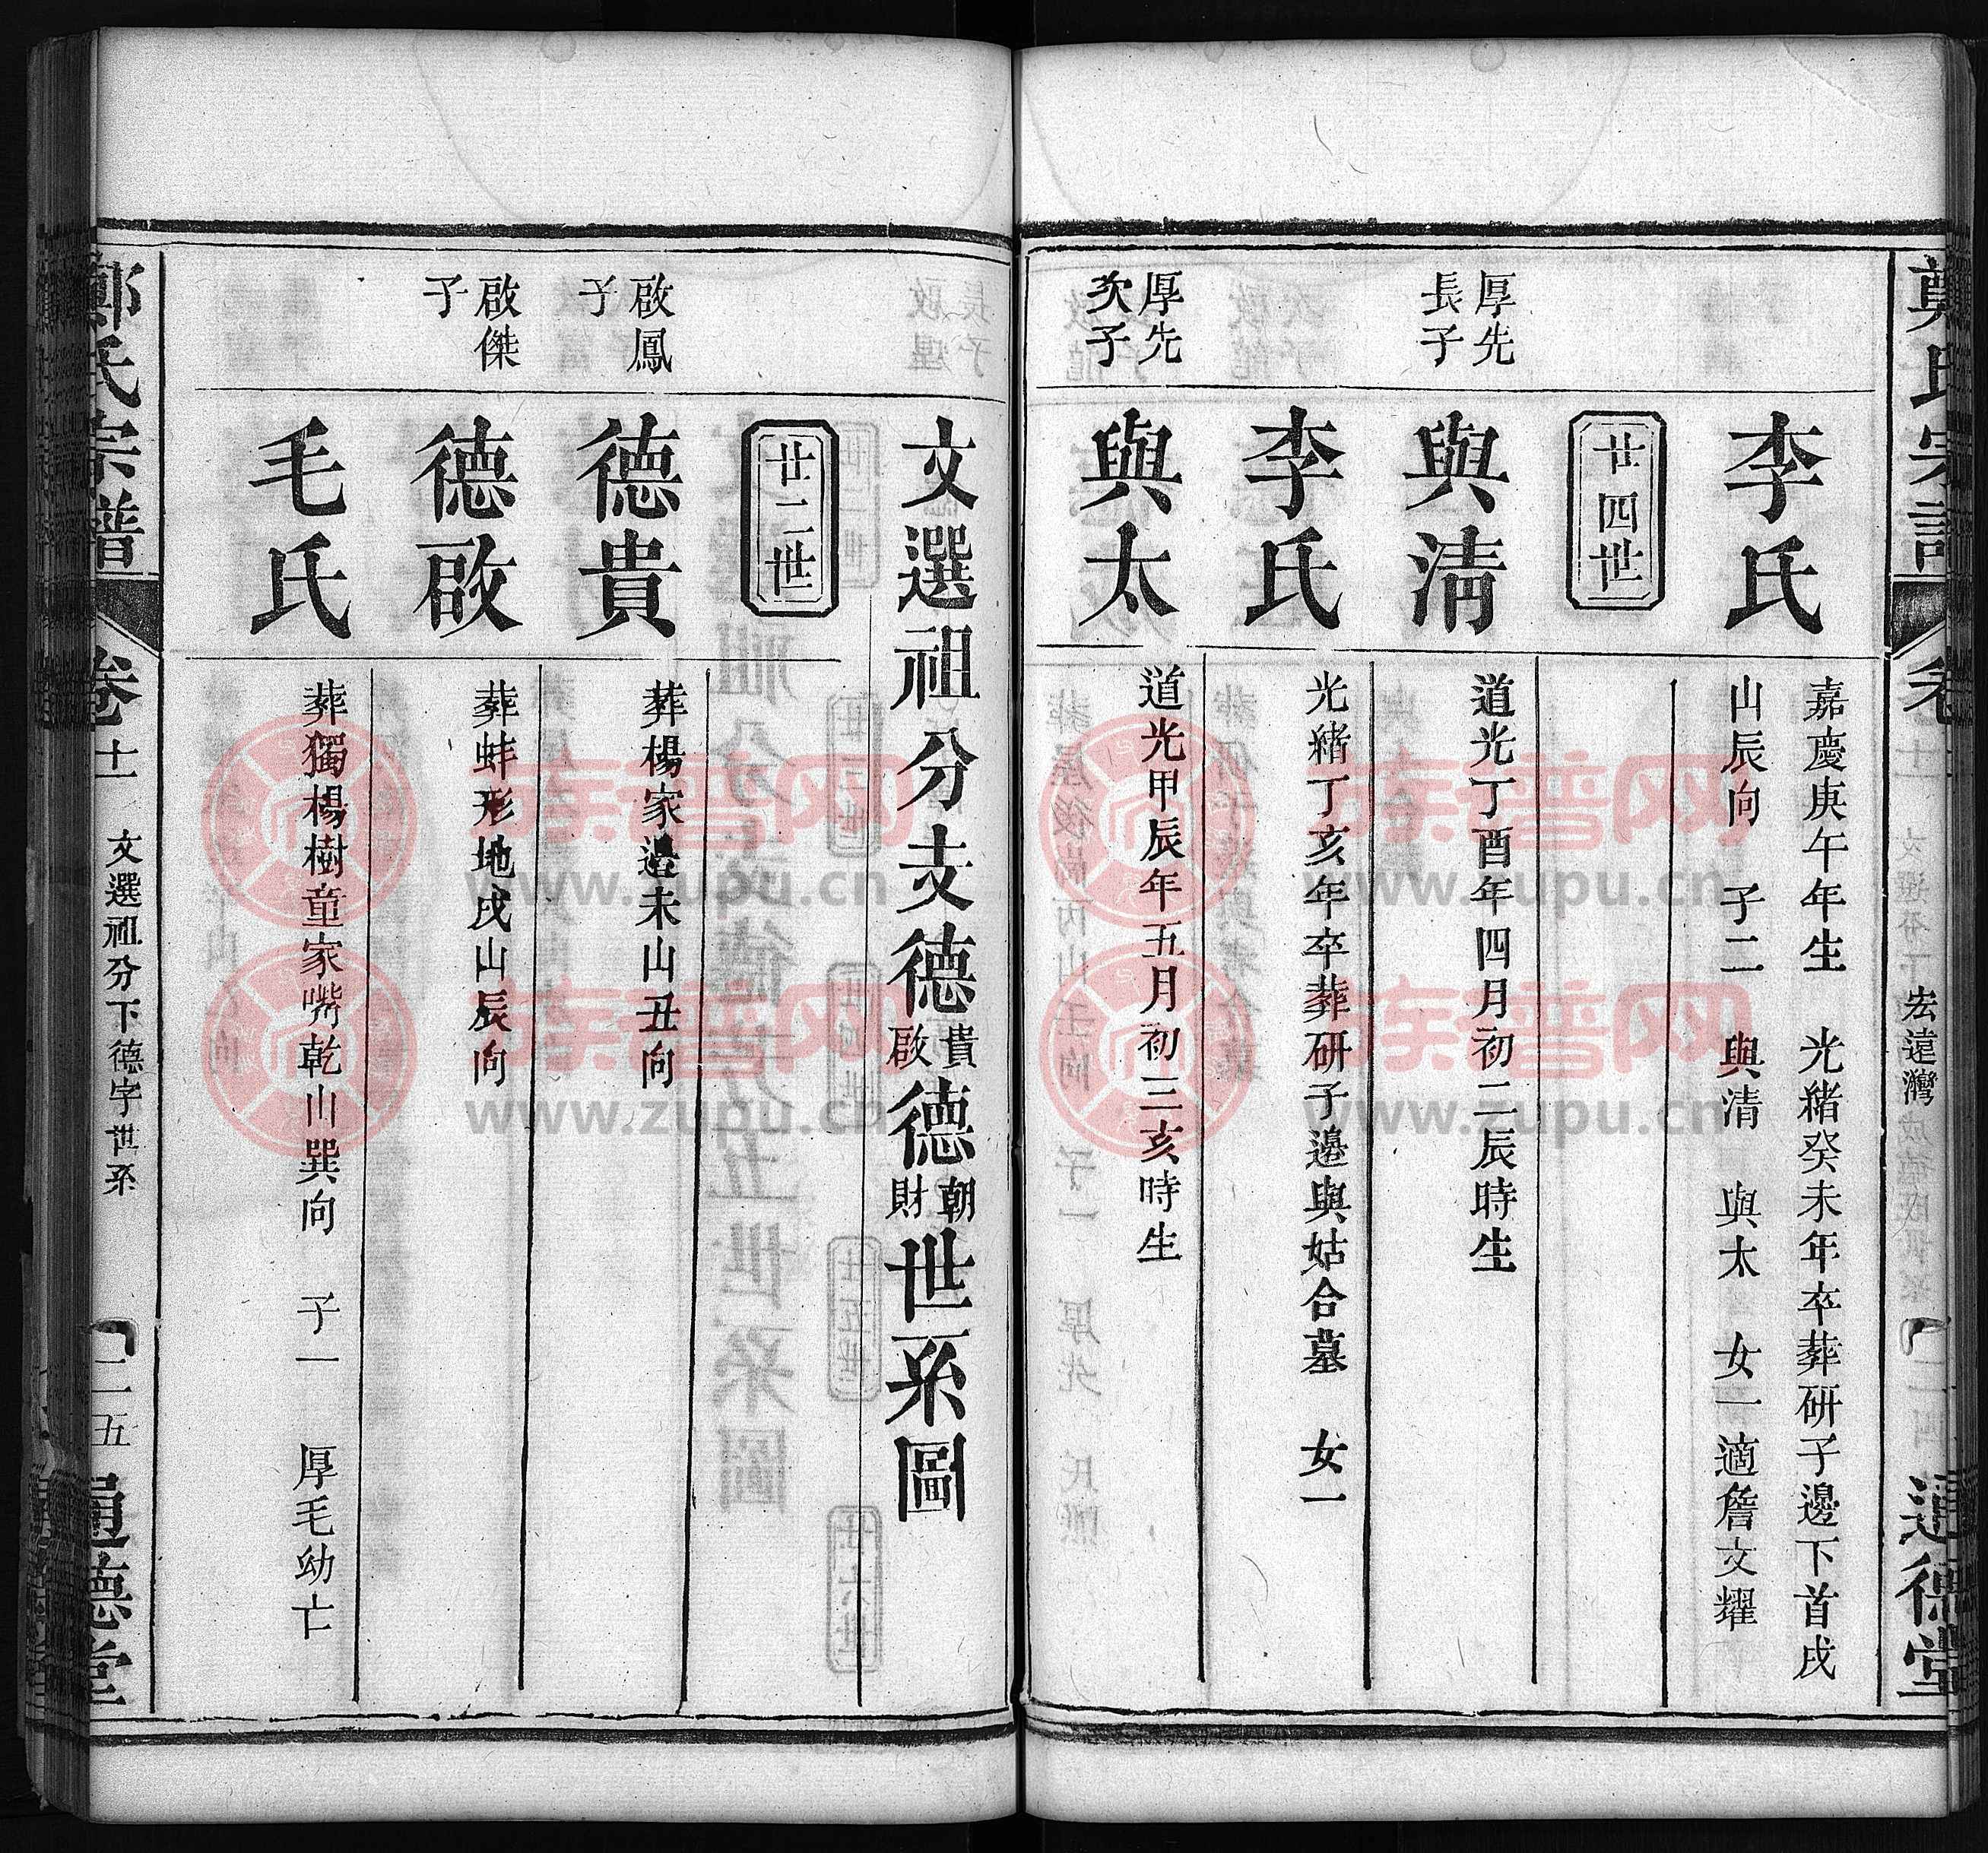 鄭氏宗譜
卷十
宏遠灣
二四
通德堂
李氏
嘉慶庚午年生　光緒癸未年卒葬研子邊下首戌
山辰向　子二　與清　與太　女一適詹文耀
廿四世
厚先
長子
與清
道光丁酉年四月初二辰時生
李氏
光緒丁亥年卒葬研子邊與姑合墓　女一
厚先
次子
與太
道光甲辰年五月初三亥時生
文選祖分支德貴啟德朝財世系圖
廿二世
啟鳳
子
德貴
葬楊家邉未山丑向
啟傑
子
德啟
葬蚌形地戌山辰向
毛氏
葬獨楊樹童家嘴乾山巽向　子一　厚毛幼亡
鄭氏宗譜
卷十一
文選祖分下德字世系
二五
通德堂
族譜网
www.zupu.cn
族譜网
www.zupu.cn
族譜网
www.zupu.cn
族譜网
www.zupu.cn